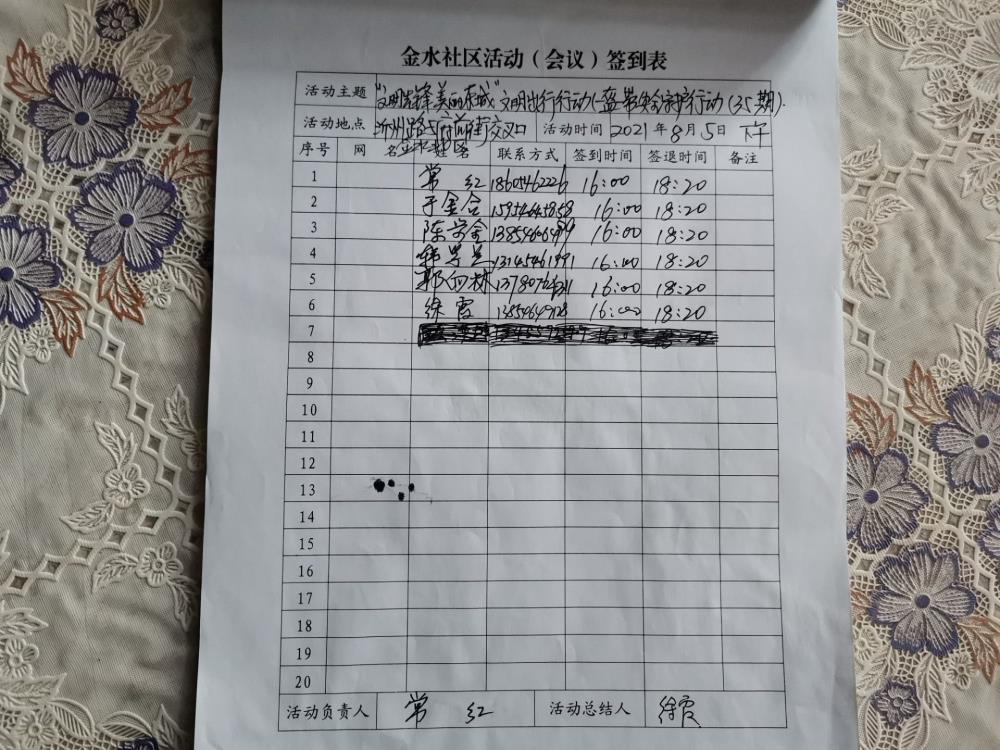 金水社区活动（会议）签到表
活动主题 "文明先锋 美丽东城" 文明出行行动(一盔一带安全守护行动(35期).
活动地点 沂州路与府前街交叉口 活动时间 2021 年 8 月 5 日 下午
序号 网 名 姓 名 联系方式 签到时间 签退时间 备注
1 常 红 18605462226 16:00 18:20
2 于金合 15954645858 16:00 18:20
3 陈学全 16:00 18:20
4 16:00 18:20
5 郭向林 16:00 18:20
6 徐霞 16:00 18:20
7
8
9
10
11
12
13
14
15
16
17
18
19
20
活动负责人 常 红 活动总结人 徐霞